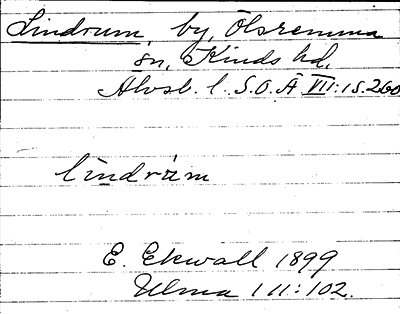 Lindrum, by, Ölsremma
sn, Kinds hd,
Älvsb. l. S.O.Ä VII:1 s.260
lìndrúm
E. Ekwall 1899
Ulma 111:102.